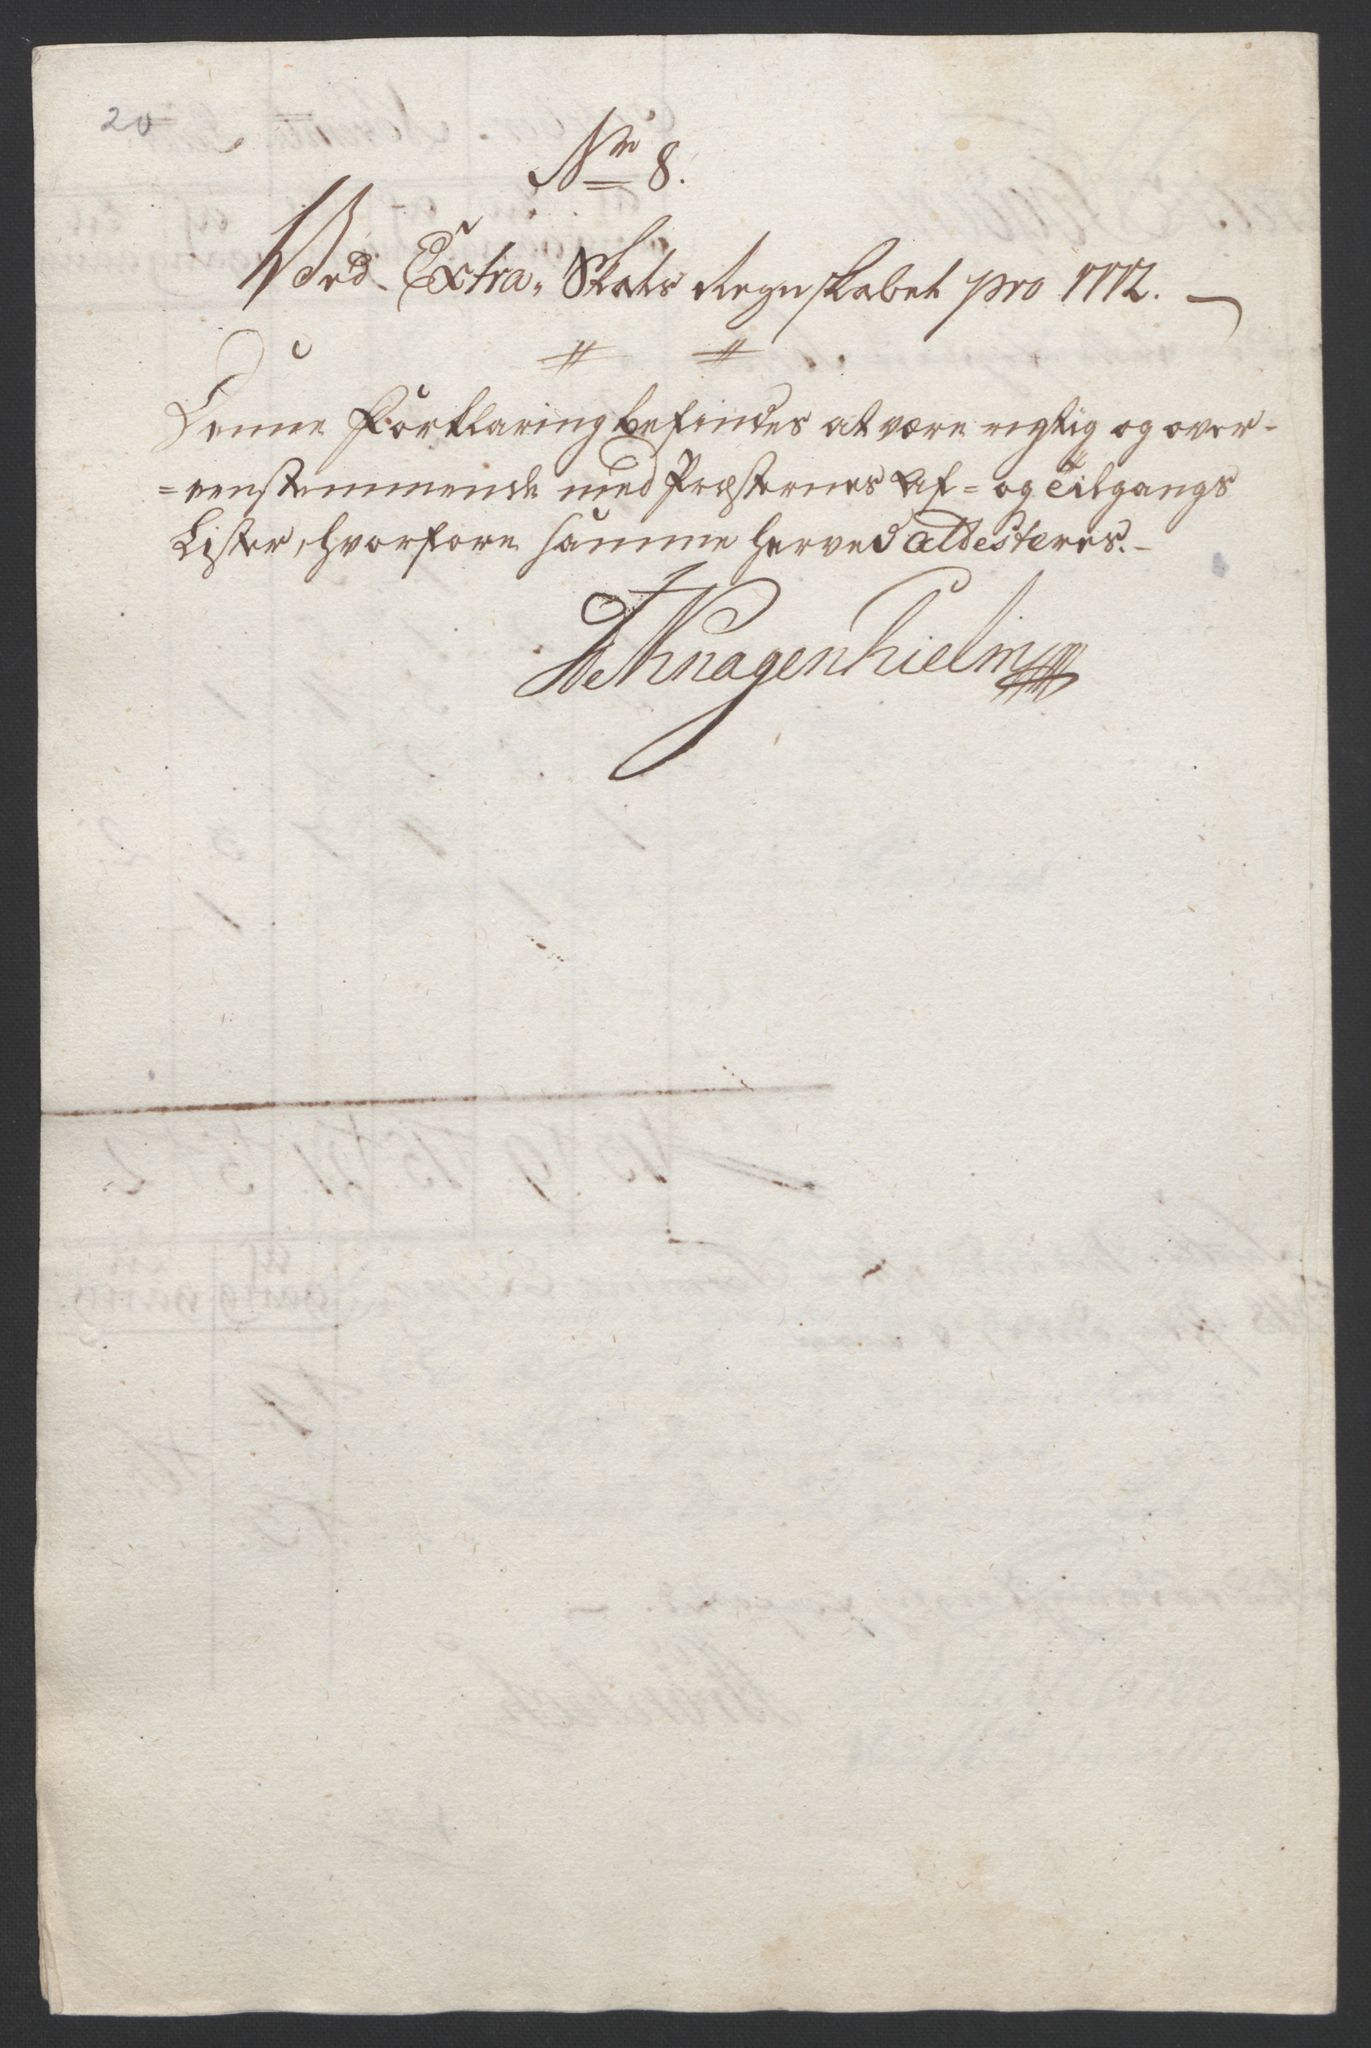 20
No 8.
Ved Extra-Skats Regnskabet pro 1772.
Denne Forklaring befindes at være rigtig og over-
=eenstemmende med Præsternes Af- og Tilgangs
Lister, hvorfore samme herved attesteres.
Knagenhielm